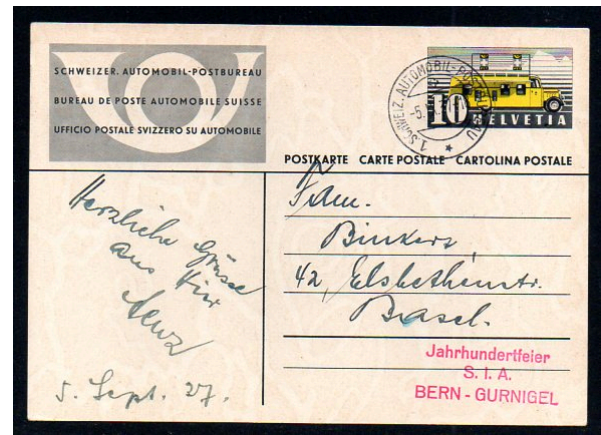 SCHWEIZER. AUTOMOBIL-POSTBUREAU
BUREAU DE POSTE AUTOMOBILE SUISSE
UFFICIO POSTALE SVIZZERO SU AUTOMOBILE
1 SCHWEIZ. AUTOMOBIL-POSTBUREAU
-5.
10 HELVETIA
POSTKARTE CARTE POSTALE CARTOLINA POSTALE
Herzliche Grüsse
aus
5. Sept. 37.
Fam.
42, Elsbethenstr.
Basel.
Jahrhundertfeier
S. I. A.
BERN - GURNIGEL